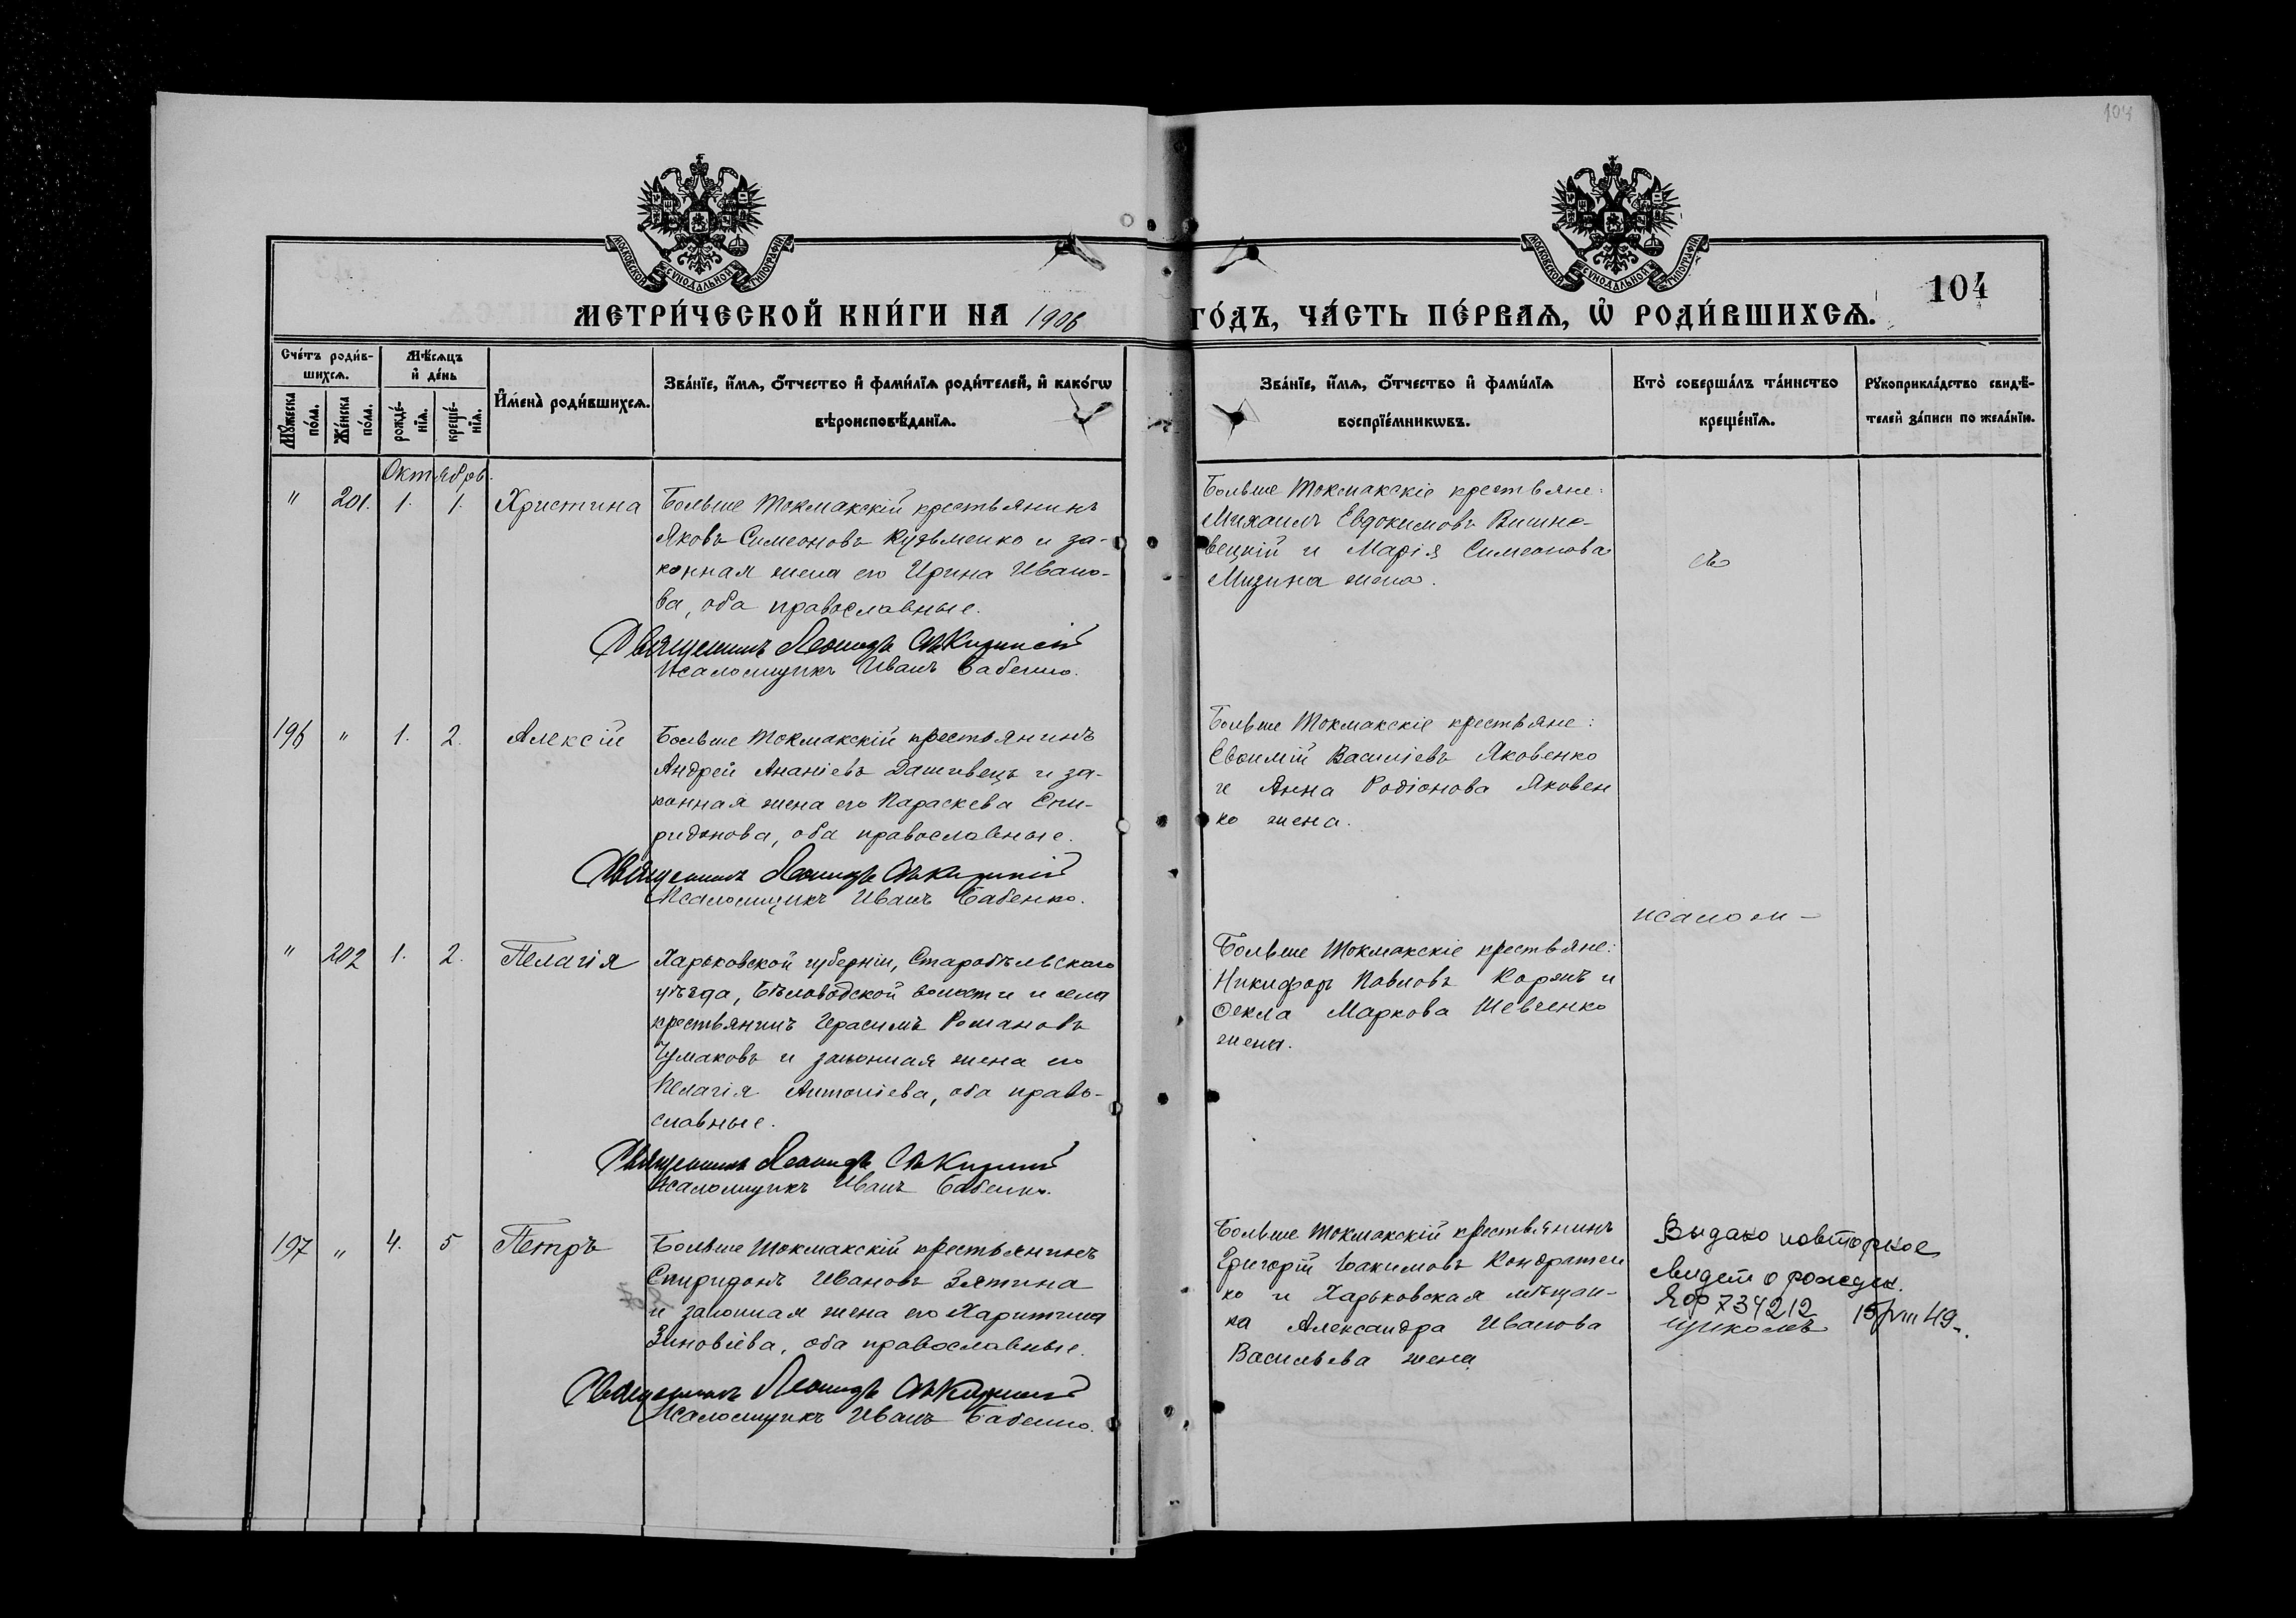 104
МОСКОВСКОЙ СѴНОДАЛЬНОЙ ТИПОГРАФІИ
МОСКОВСКОЙ СѴНОДАЛЬНОЙ ТИПОГРАФІИ
104
МЕТРИ́ЧЕСКОЙ КНИ́ГИ НА 1906 ГО́ДЪ, ЧА́СТЬ ПЕ́РВАѦ, Ѽ РОДИ́ВШИХСѦ.
Сче́тъ роди́в-
шихсѧ.
Мѣ́сѧцъ
и҆ де́нь
Мꙋ́жеска по́ла.
Же́нска по́ла.
рожде́-
нїѧ.
креще́-
нїѧ.
И҆мена̀ роди́вшихсѧ.
Зва́нїе, и҆́мѧ, ѻ҆́тчество и҆ фами́лїѧ роди́телей, и҆ како́гѡ
вѣроисповѣ́данїѧ.
Зва́нїе, и҆́мѧ, ѻ҆́тчество и҆ фами́лїѧ
воспрїе́мникѡвъ.
Кто̀ соверша́лъ та́инство
креще́нїѧ.
Рꙋкоприкла́дство свидѣ́-
телей за́писи по жела́нїю.
Октябрь.
" 201. 1. 1. Христина
Больше Токмакскій крестьянинъ
Яковъ Симеоновъ Кузьменко и за-
конная жена его Ирина Ивано-
ва, оба православные.
Священникъ Леонидъ
Псаломщикъ Иванъ Бабенко.
Больше Токмакскіе крестьяне:
Михаилъ Евдокимовъ Вишне-
вецкій и Марія Симеонова
Мизина жена.
съ
196 " 1. 2. Алексій
Больше Токмакскій крестьянинъ
Андрей Ананіевъ Дашивецъ и за-
конная жена его Параскева Спи-
ридонова, оба православные.
Священникъ Леонидъ
Псаломщикъ Иванъ Бабенко.
Больше Токмакскіе крестьяне:
Евѳимій Василіевъ Яковенко
и Анна Родіонова Яковен
ко жена.
псалом-
" 202 1. 2. Пелагія
Харьковской губерніи, Старобѣльскаго
уѣзда, Бѣловодской волости и села
крестьянинъ Герасимъ Романовъ
Чумаковъ и законная жена его
Пелагія Антоніева, оба право-
славные.
Священникъ Леонидъ
Псаломщикъ Иванъ Бабенко.
Больше Токмакскіе крестьяне:
Никифоръ Павловъ и
Ѳекла Маркова Шевченко
жена.
197 " 4. 5 Петръ
Больше Токмакскій крестьянинъ
Спиридонъ Ивановъ Зятина
и законная жена его Харитина
Зиновіева, оба православные.
Священникъ Леонидъ
Псаломщикъ Иванъ Бабенко.
Больше Токмакскій крестьянинъ
Григорій Іакимовъ Кондратен
ко и Харьковская мѣщан-
ка Александра Иванова
Васильева жена
Выдано повторное
свидет о рожден.
ЯФ 734212 15/VIII 49г.
щикомъ